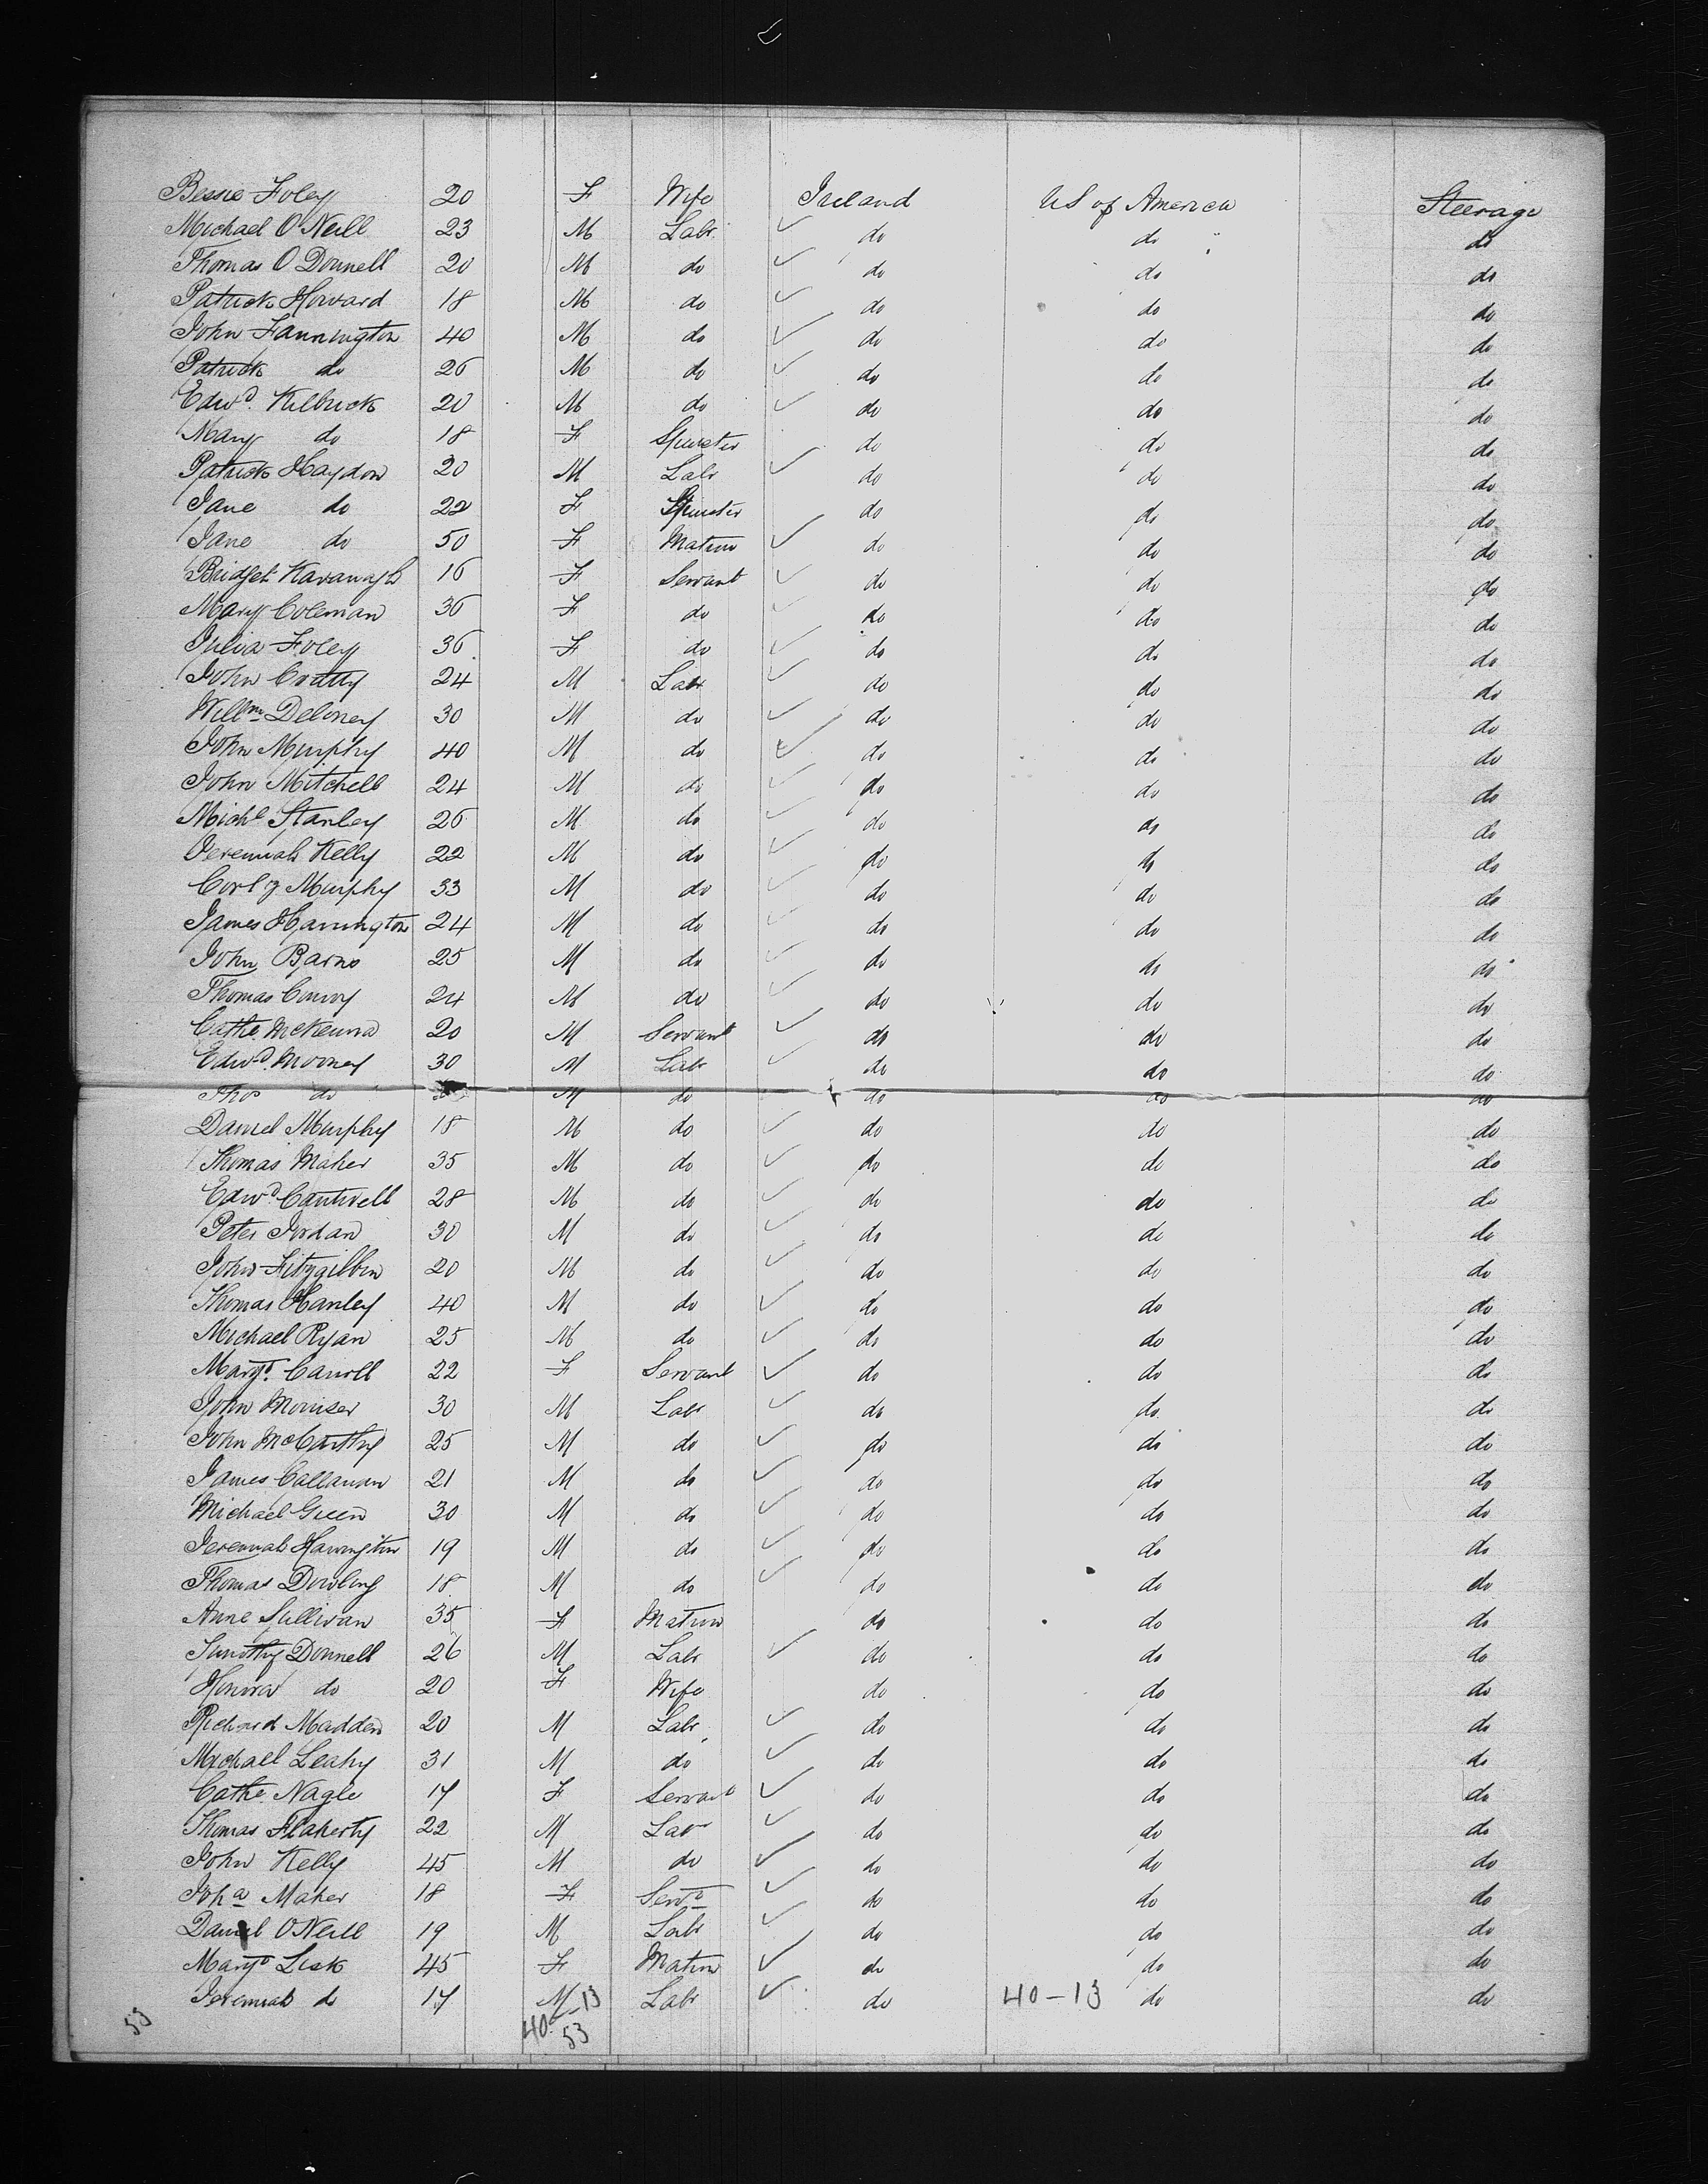 Bessie Foley 20 F Wife Ireland US of America Steerage
Michael O'Neill 23 M Labr do do do
Thomas O Donnell 20 M do do do do
Patrick Howard 18 M do do do do
John Fannington 40 M do do do do
Patrick do 26 M do do do do
Edwd. Kilbrick 20 M do do do do
Mary do 18 F Spinster do do do
Patrick Haydon 20 M Labr do do do
Jane do 22 F Spinster do do do
Jane do 50 F Matron do do do
Bridget Kavanagh 16 F Servant do do do
Mary Coleman 36 F do do do do
Julia Foley 36 F do do do do
John Cratty 24 M Labr do do do
Willm Deloney 30 M do do do do
John Murphy 40 M do do do do
John Mitchell 24 M do do do do
Michl Stanley 26 M do do do do
Jeremiah Kelly 22 M do do do do
Corls Murphy 33 M do do do do
James Harrington 24 M do do do do
John Barns 25 M do do do do
Thomas Conroy 24 M do do do do
Cathe. McKenna 20 M Servant do do do
Edwd. Mooney 30 M Labr do do do
Thos do M do do do do
Daniel Murphy 18 M do do do do
Thomas Maher 35 M do do do do
Edwd. Cantwell 28 M do do do do
Peter Jordan 30 M do do do do
John Fitzgibbon 20 M do do do do
Thomas Hanley 40 M do do do do
Michael Ryan 25 M do do do do
Margt. Carroll 22 F Servant do do do
John 30 M Labr do do do
John McCarthy 25 M do do do do
James Callanan 21 M do do do do
Michael Green 30 M do do do do
Jeremiah Harrington 19 M do do do do
Thomas Dowling 18 M do do do do
Anne Sullivan 35 F Matron do do do
Timothy Donnell 26 M Labr do do do
Honora do 20 F Wife do do do
Richard Madden 20 M Labr do do do
Michael Leahy 31 M do do do do
Cathe. Nagle 17 F Servant do do do
Thomas Flaherty 22 M Labr do do do
John Kelly 45 M do do do do
Joha Maher 18 F Servt do do do
Daniel O'Neill 19 M Labr do do do
Margt Lisk 45 F Matron do do do
Jeremiah do 17 M Labr do 40-13 do do
53 40-13
53